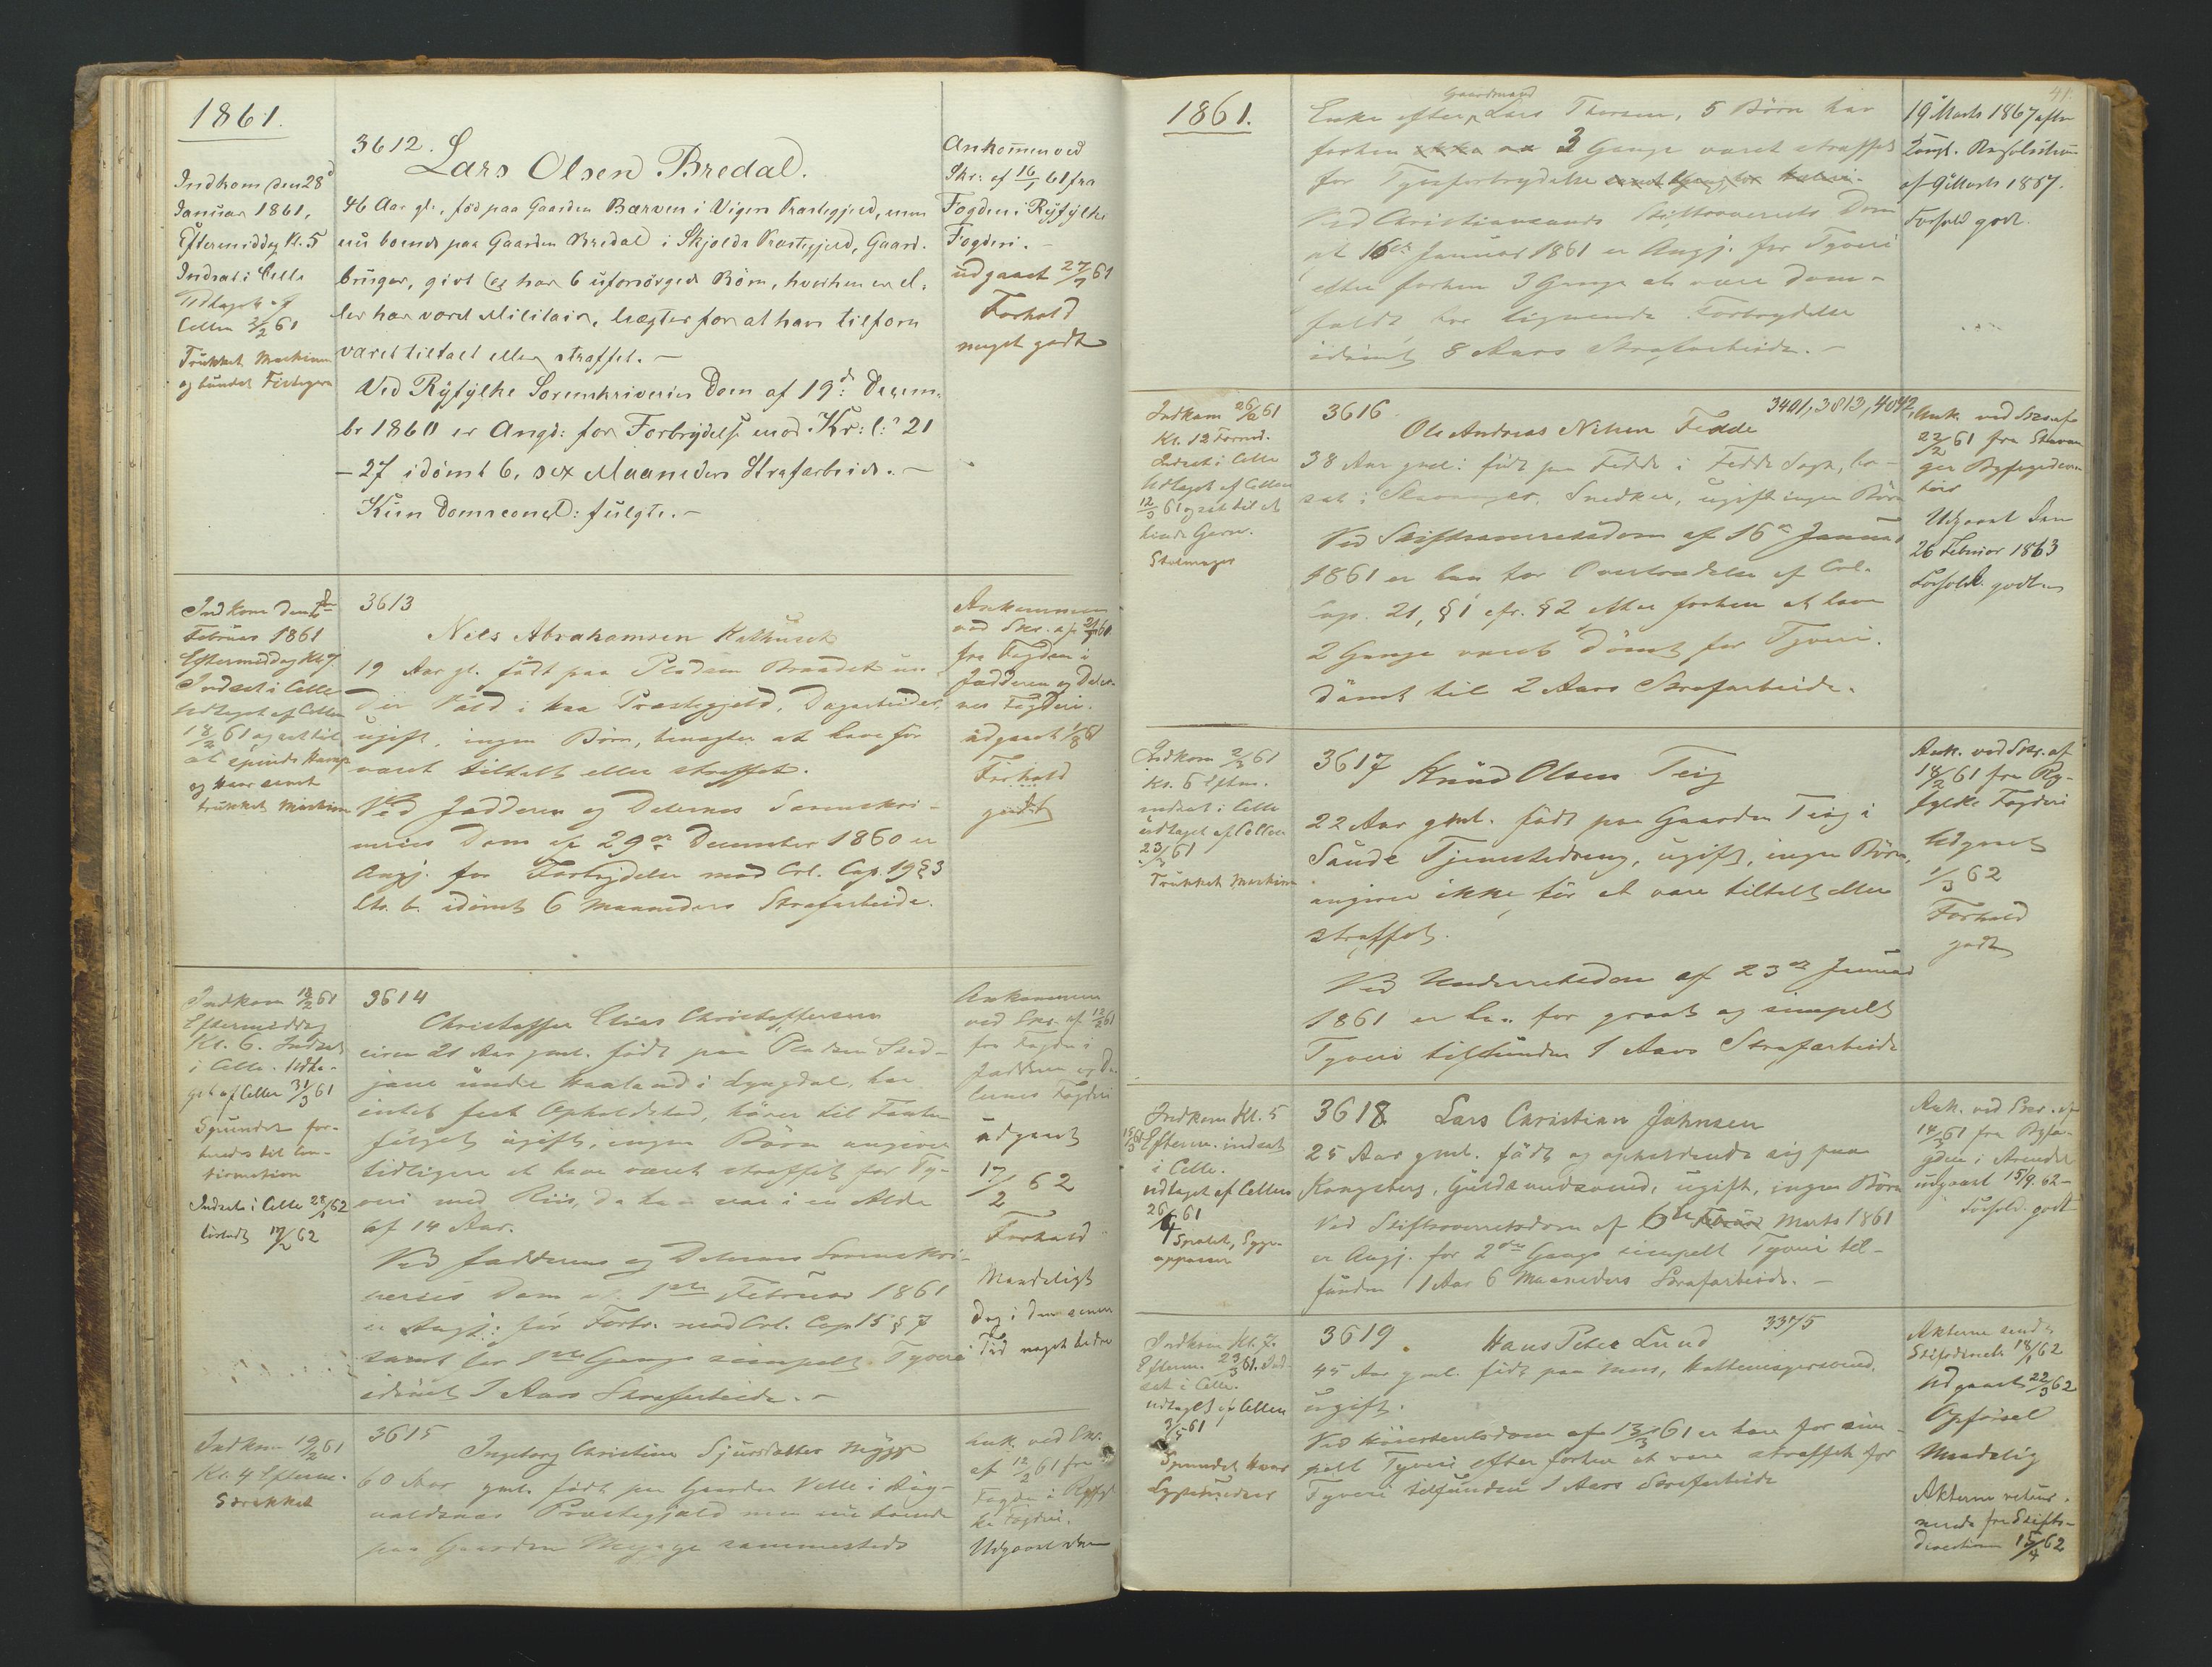 1861.
Indkom den 28d
Januar 1861,
Eftermiddag Kl. 5
Indsat i Celle
Udtaget af
Cellen 2/2 61
Trukket Maskinen
og bundet Fiskegarn
3612.
Lars Olsen Bredal.
46 Aar gl., fød paa Gaarden Bærven i Vigers Præstegjeld, men
nu boende paa Gaarden Bredal i Skjolds Præstegjeld, Gaard-
bruger, givt og har 6 uforsörgede Börn, hverken er el-
ler har været Militair, nægter for at have tilforn
været tiltalt eller straffet. —
Ved Ryfylke Sorenskriveries Dom af 19d: Decem-
br 1860 er Angd: for Forbrydelse mod Kr: l: 21
– 27 idömt 6, sex Maaneders Strafarbeide. —
Kun Domsconcl: fulgte. —
Ankommen ved
Skr: af 16/1 61 fra
Fogden i Ryfylke
Fogderi. —
udgaaet 27/7 61
Forhold
meget godt
Indkom den
Februar 1861
Eftermiddag Kl. 7.
Indsat i Celle
Udtaget af Cellen
18/2 61 og sat til
at spinde Hamp
og Haar samt
trukket Maskin
3613
Nils Abrahamsen Kalhuset
19 Aar gl. födt paa Pladsen Braadet un-
der i Haa Præstegjeld, Dagarbeider,
ugift, ingen Börn, benægter at have för
været tiltalt eller straffet.
Ved Jædderen og Dalernes Sorenskri-
veries Dom af 29de December 1860 er
Angj. for Forbrydelse mod Crl. Cap. 19 § 3
Ltr. b. idömt 6 Maaneders Strafarbeide.
Ankommen
ved Skr. af 61
fra Fogden i
Jædderen og Daler-
nes Fogderi.
udgaaet 1/8 61
Forhold
godt
Indkom 18/2 61
Eftermiddag
Kl. 6. Indsat
i Celle. Udta-
get af Cellen 31/3 61
Spundet for-
beredt til Con-
firmation
Indsat i Celle 28/1 62
17/2 62
3614
Christoffer Elias Christoffersen
circa 21 Aar gml. födt paa Pladsen
under Haaland i Lyngdal, har
intet fast Opholdssted, hörer til Tater
fölget, ugift, ingen Börn angiver
tidligere at have været straffet for Ty-
veri med Riis, da han var i en Alder
af 14 Aar.
Ved Jædderens og Dalernes Sorenskri-
veries Dom af 1ste Februar 1861
er Angj: for Forbr. mod Crl. Cap 15 § 7
samt for 1ste Gang simpelt Tyveri
idömt 1 Aars Strafarbeide. —
Ankommen
ved Skr. af 12/2 61
fra Fogden i
Jædderen og Da-
lernes Fogderi
udgaaet
17/2 62
Forhold
Maadeligt
dog i den senere
Tid noget bedre
Indkom 19/2 61
Kl. 4 Efterm.
Strikket
3615
Ingeborg Christine Sjursdatter Mygge
60 Aar gml. födt paa Gaarden Velle i
Præstegjæld men nu boende
paa Gaarden Mygge sammesteds
Ank. ved Skr.
af 12/2 61 fra
Fogden i Ryfyl-
ke Fogderi.
Udgaaet den
41.
1861.
Gaardmand
Enke efter Lars Thorsen, 5 Börn har
forhen ikke 3 Gange været straffet
for Tyvsforbrydelse
Ved Christianssands Stiftsoverrets Dom
af 16de Januar 1861 er Angj. for Tyveri
efter forhen 3 Gange at være dom-
fældt for lignende Forbrydelse
idömt 8 Aars Strafarbeide. —
19 Marts 1867 efter
Kongl. Resolution
af 9 Marts 1867.
Forhold godt.
Indkom 26/2 61
Kl. 12 Formd.
Indsat i Celle
Udtaget af Cellen
12/3 61 og sat til at
binde Garn.
Stolmager
3616
3401, 3813, 4042
Ole Andreas Nilsen Fedde
38 Aar gml: födt paa Fedde i Fedde Sogn, bo-
sat i Stavanger, Snedker, ugift ingen Börn
Ved Stiftsoverretsdom af 16de Januar
1861 er han for Overtrædelse af Crl.
Cap. 21, § 1 cfr. § 2 efter forhen at have
2 Gange været dömt for Tyveri.
dömt til 2 Aars Strafarbeide.
Ank. ved Skr. af
22/2 61 fra Stavan
ger Byfogedcon
toir
Udgaaet den
26 Februar 1863
Forhold. godt
Indkom 2/3 61
Kl. 6 Eftm.
indsat i Celle
udtaget af Cellen
23/3 61
Trukket Maskin
3617
Knud Olsen Teig
22 Aar gml. födt paa Gaarden Teig i
Saude Tjenestedreng, ugift, ingen Börn,
angiver ikke för at være tiltalt eller
straffet.
Ved Underretsdom af 23de Januar
1861 er han for grovt og simpelt
Tyveri tilfunden 1 Aars Strafarbeide
Ank. ved Skr. af
18/2 61 fra Ry-
fylke Fogderi
Udgaaet
1/3 62
Forhold
godt
Indkom Kl. 5
15/3 61 Efterm. indsat
i Celle.
udtaget af Cellen
26/4 61
Spolet, Syge-
oppasser
3618
Lars Christian Johnsen
25 Aar gml. födt og opholdende sig paa
Kongsberg, Guldsmedsvend, ugift, ingen Börn
Ved Stiftsoverretsdom af 6te Februar Marts 1861
er Angj. for 2den Gangs simpelt Tyveri til-
funden 1 Aar 6 Maaneders Strafarbeide. —
Ank. ved Skr. af
14/3 61 fra Byfo-
gden i Arendal
udgaaet 15/9. 62 –
Forhold. godt
Indkom Kl. 7
Efterm. 23/3 61. Ind-
sat i Celle.
udtaget af Cellen
3/5 61
Spundet Haar
3619.
3375
Hans Peter Lund
45 Aar gml. födt paa Moss, Hattemagersvend,
ugift.
Ved Höiesteretsdom af 13/3 61 er han for sim-
pelt Tyveri efter forhen at være straffet for
Tyveri tilfunden 1 Aars Strafarbeide
Akterne sendt
Stiftsdirect. 18/1 62
Udgaaet 22/3 62
Opförsel
Maadelig
Akterne retur-
nerede fra Stifts-
direction 15/4 62